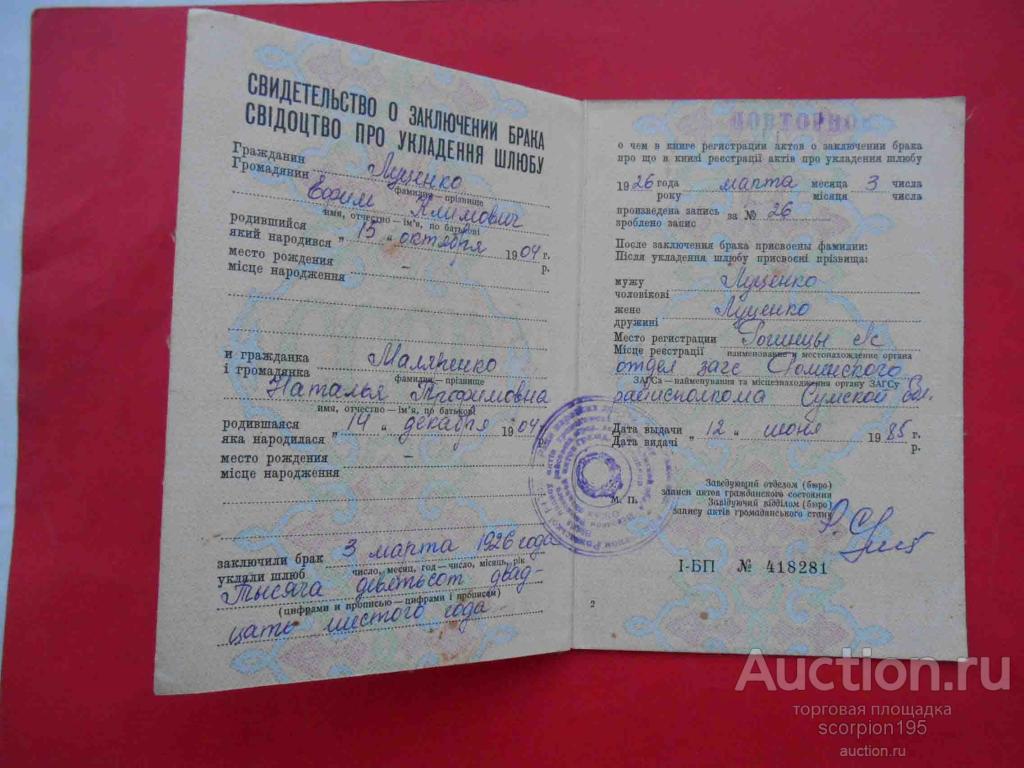 СВИДЕТЕЛЬСТВО О ЗАКЛЮЧЕНИИ БРАКА
СВІДОЦТВО ПРО УКЛАДЕННЯ ШЛЮБУ
Гражданин
Громадянин Луценко
фамилия — прізвище
Ефим Климович
имя, отчество — ім'я, по батькові
родившийся
який народився „ 15 „ октября 1904 г.
р.
место рождения
місце народження –
и гражданка
і громадянка Маляренко
фамилия — прізвище
Наталья Трофимовна
имя, отчество — ім'я, по батькові
родившаяся
яка народилася „ 14 „ декабря 1904 г.
р.
место рождения
місце народження –
заключили брак
уклали шлюб 3 марта 1926 года
число, месяц, год — число, місяць, рік
Тысяча девятьсот двад-
(цифрами и прописью — цифрами і прописом)
цать шестого года
ПОВТОРНОЕ
о чем в книге регистрации актов о заключении брака
про що в книзі реєстрації актів про укладення шлюбу
1926 года марта месяца 3 числа
року місяця числа
произведена запись
зроблено запис за № 26
После заключения брака присвоены фамилии:
Після укладення шлюбу присвоєні прізвища:
мужу
чоловікові Луценко
жене
дружині Луценко
Место регистрации
Місце реєстрації Рогинцы
наименование и местонахождение органа
отдел загс Роменского
ЗАГСа — найменування та місцезнаходження органу ЗАГСу
райисполкома Сумской обл.
Дата выдачи
Дата видачі „ 12 „ июня 1985 г.
р.
М. П.
Заведующий отделом (бюро)
записи актов гражданского состояния
Завідуючий відділом (бюро)
запису актів громадянського стану
І-БП № 418281
2
Auction.ru
торговая площадка
scorpion195
auction.ru